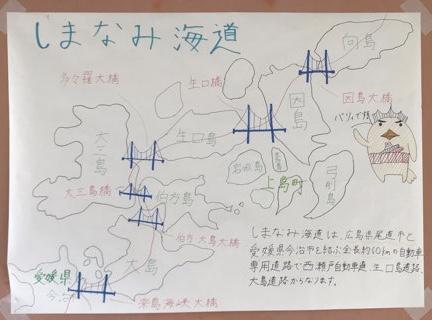 しまなみ海道
向島
多々羅大橋
生口橋
因島
因島大橋
バリィで損
大三島
生口島
岩城島
弓削島
上島町
大三島橋
伯方島
伯方大島大橋
大島
愛媛県
今治
来島海峡大橋
しまなみ海道は、広島県尾道市と
愛媛県今治市を結ぶ全長約60kmの自動車
専用道路で西瀬戸自動車道、生口島道路、
大島道路からなります。